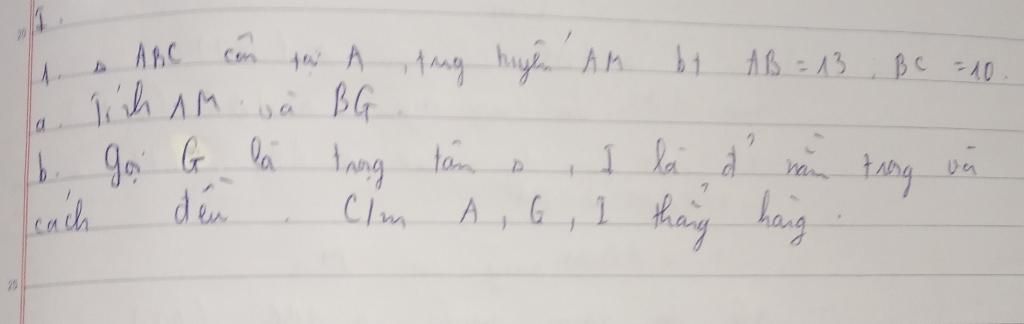 I.
1. Δ ABC cân tại A, trung tuyến AM bt AB = 13; BC = 10.
a. Tính AM và BG.
b. gọi G là trọng tâm Δ, I là đ' nằm trong và
cách đều. C/m A, G, I thẳng hàng.
20
25